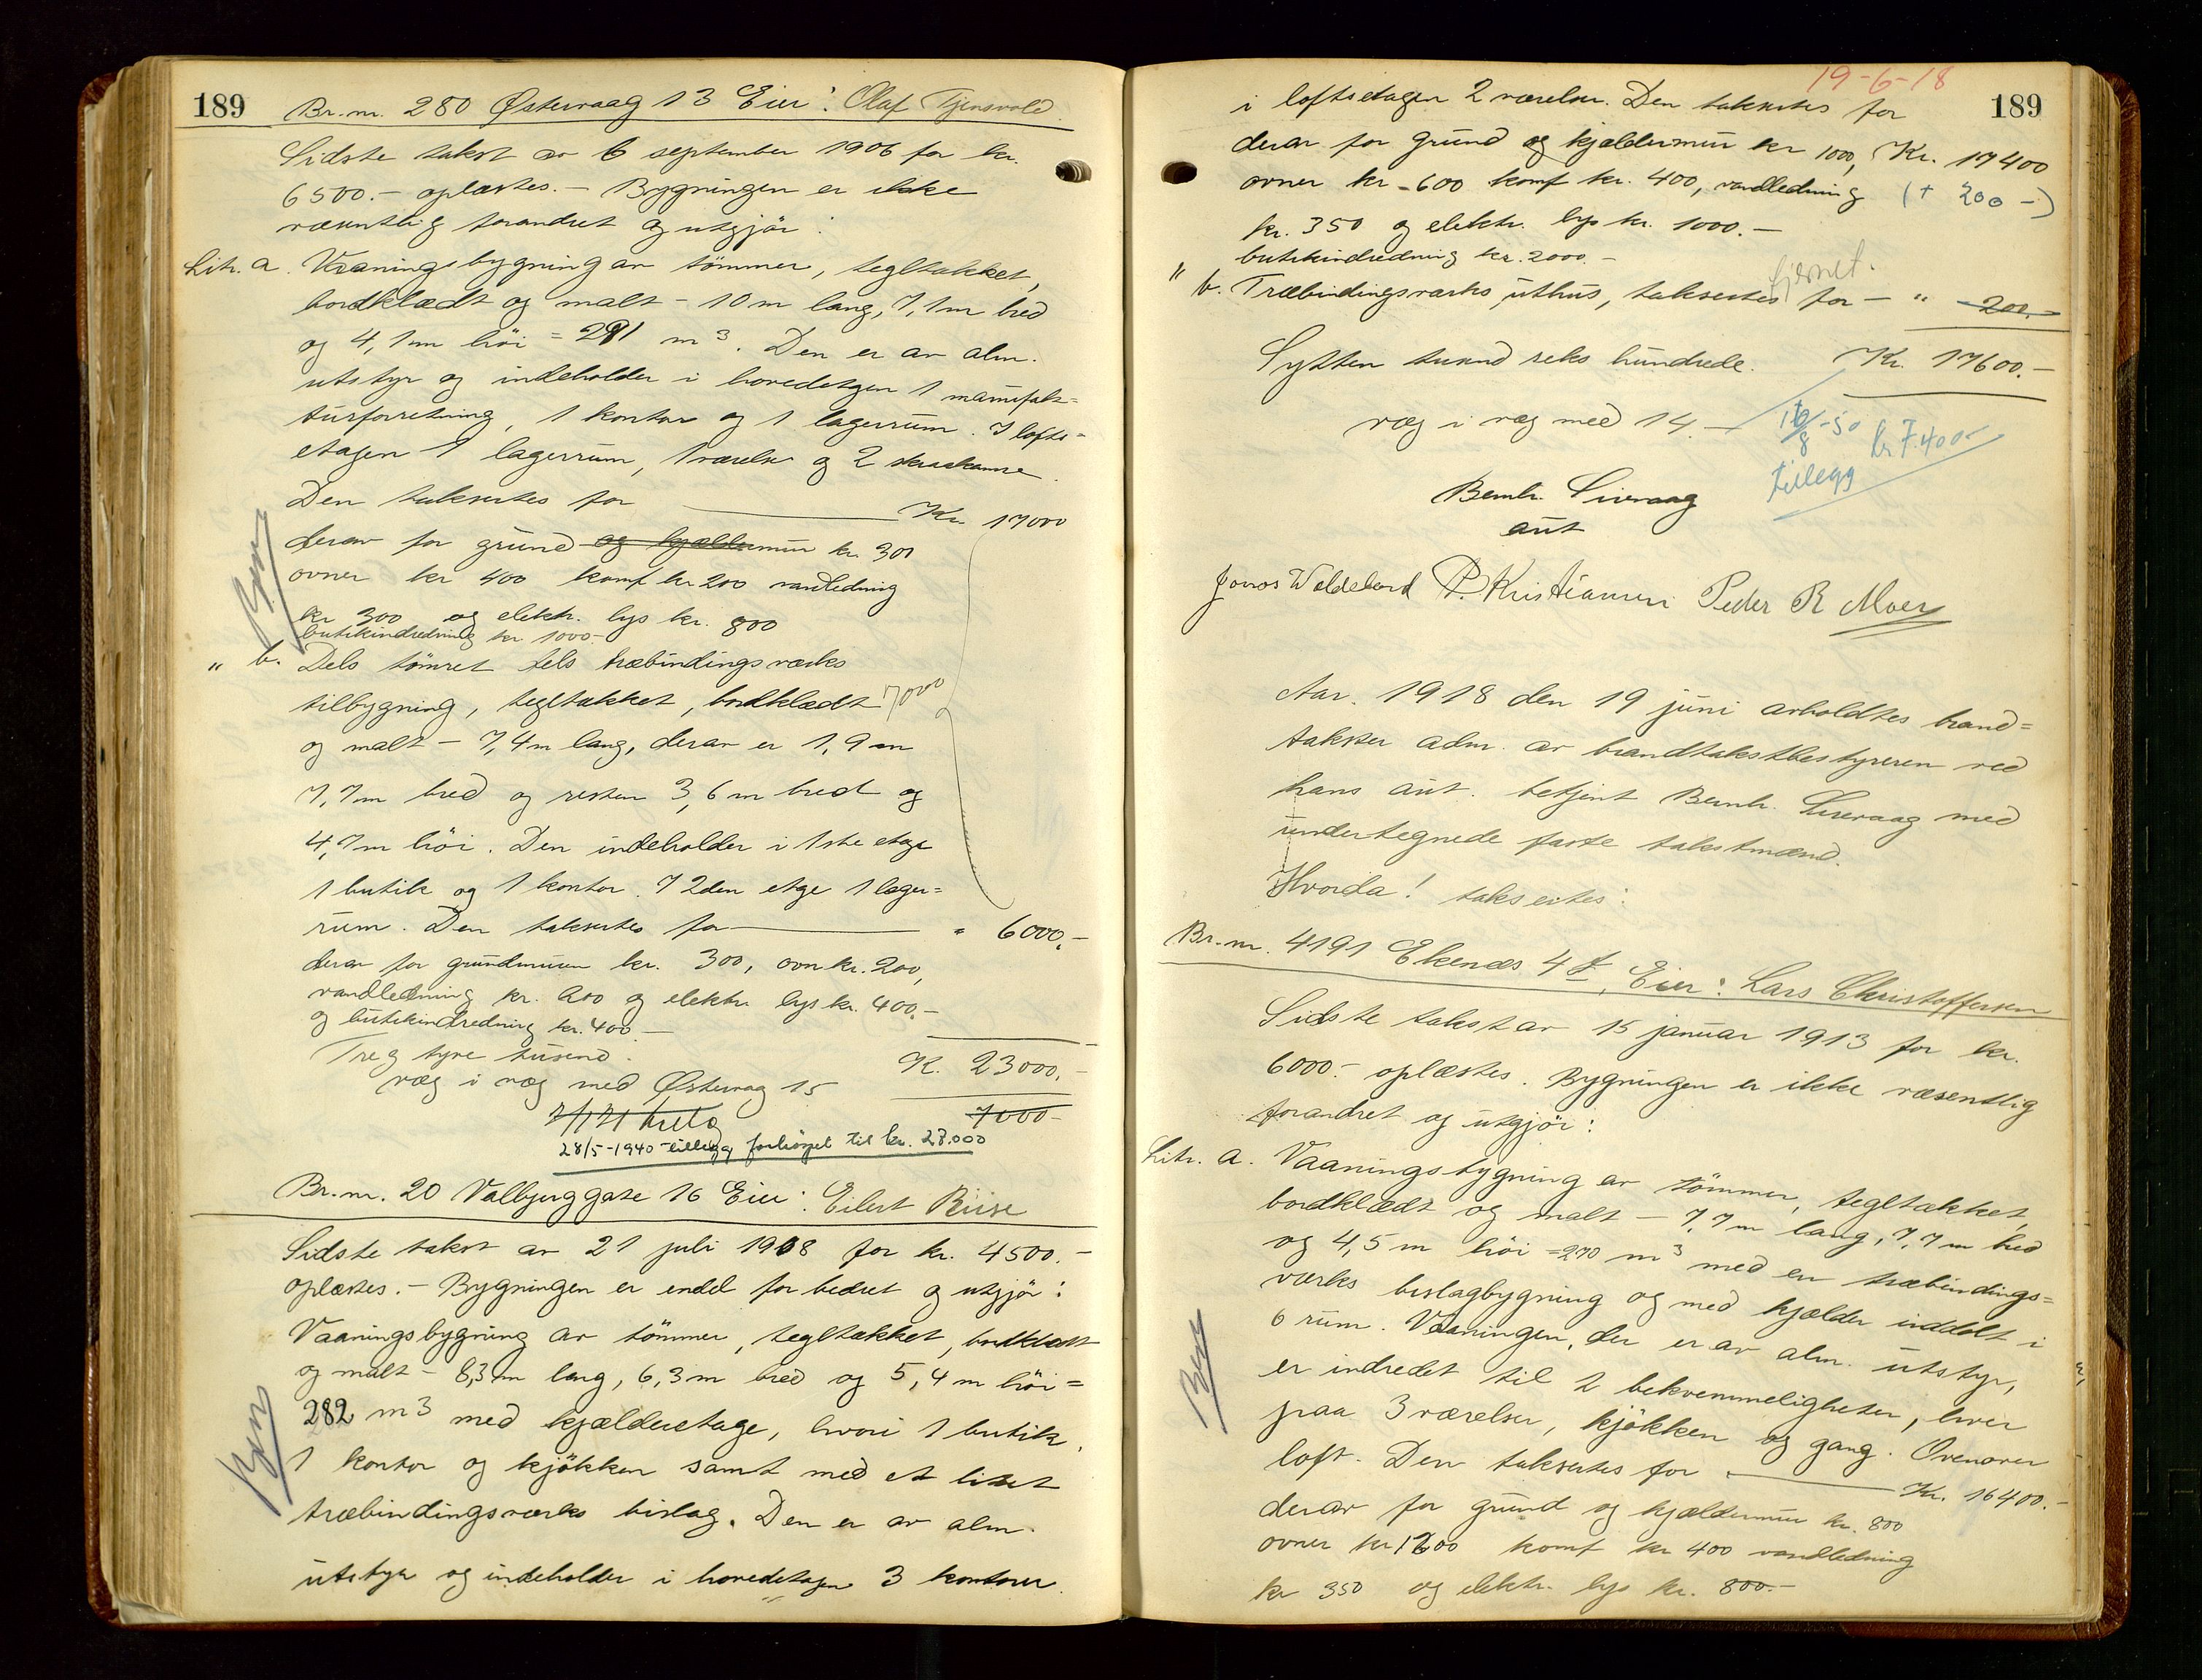 189
Br.nr. 280 Østervaag 13 Eier: Olaf Tjensvold.
Sidste takst av 6 september 1906 for kr.
6500.- oplæstes. - Bygningen er ikke
væsentlig forandret og utgjör:
Litr. a. Vaaningsbygning av tömmer, tegltækket,
bordklædt og malt - 10 m lang, 7,1 m bred
og 4,1 m höi = 291 m³. Den er av alm.
utstyr og indeholder i hovedetagen 1 manufak=
turforretning, 1 kontor og 1 lagerrum. I lofts=
etagen 1 lagerrum, 1 værelse og 2 skraakamre.
Den takseres for Kr. 17000
derav for grund og kjældermur kr. 300
ovner kr 400 komf kr 200 vandledning
kr 300 og elektr. lys kr. 800
butikindredning kr 1000-
" b. Dels tömret dels træbindingsværks
tilbygning, tegltækket, bordklædt 7000
og malt - 7,4 m lang, derav er 1,9 m
7,7 m bred og resten 3,6 m bred og
4,7 m höi. Den indeholder i 1ste etage
1 butik og 1 kontor. I 2den etge 1 lager=
rum. Den takseres for " 6000.-
derav for grundmuren kr. 300, ovn kr. 200,
vandledning kr. 200 og elektr. lys kr. 400.-
og butikindredning kr. 400.-
Tre og tyve tusend. K. 23000.-
væg i væg med Østervag 15
7000-
28/5-1940 tillegg forhöyet til kr. 28.000
Bem
Br.nr. 20 Valbjerggate 16 Eier: Eilert Riise
Sidste takst av 21 juli 1908 for kr. 4500.-
oplæstes. - Bygningen er endel forbedret og utgjör:
Vaaningsbygning av tömmer, tegltækket, bordklædt
og malt - 8,3 m lang, 6,3 m bred og 5,4 m höi =
282 m³ med kjælderetage, hvori 1 butik,
1 kontor og kjökken samt med et litet
træbindingsværks bislag. Den er av alm.
utstyr og indeholder i hovedetagen 3 kontorer.
Bem
19-6-18
189
i loftsetagen 2 værelser. Den takseres for
derav for grund og kjældermur kr 1000, Kr. 17400
ovner kr 600 komf kr. 400, vandledning (+ 200 -)
kr. 350 og elektr. lys kr. 1000.-
butikindredning kr. 2000.-
fjernet.
" b. Træbindingsværks uthus, takseres for - " 200.-
Sytten tusend seks hundrede. Kr. 17600.-
væg i væg med 14.-
16/8-50 kr 7.400-
tillegg
Bernh. Liveraag
aut
Jonas Woldebord P. Kristiansen Peder R Moer
Aar. 1918 den 19 juni avholdtes brand=
takster adm. av brandtakstbestyreren ved
hans aut. betjent Bernh. Liveraag med
undertegnede faste takstmænd.
Hvorda! takseres:
Br.nr. 4191 Ekenæs 4 f, Eier: Lars Christoffersen
Sidste takst av 15 januar 1913 for kr.
6000.- oplæstes. Bygningen er ikke væsentlig
forandret og utgjör:
Litr. a. Vaaningsbygning av tömmer, tegltækket,
bordklædt og malt - 7,7 m lang, 7,7 m bred
og 4,5 m höi = 270 m³ med en træbindings=
værks bislagbygning og med kjælder inddelt i
6 rum. Vaaningen, der er av alm. utstyr,
er indredet til 2 bekvemmeligheter, hver
paa 3 værelser, kjökken og gang. Ovenover
loft. Den takseres for Kr. 16400.-
derav for grund og kjældermur kr. 800
ovner kr 1200 komf kr 400 vandledning
kr 350 og elektr. lys kr. 800.-
Bem